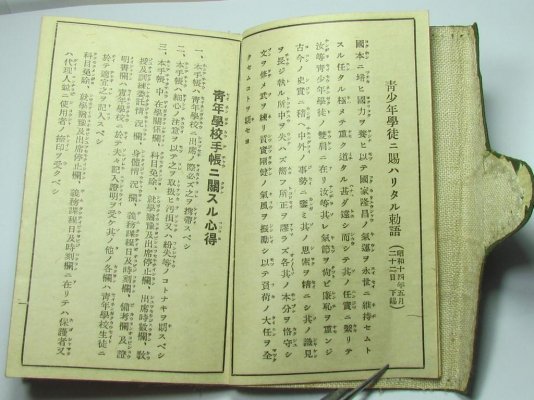 青少年學徒ニ賜ハリタル勅語
（昭和十四年五月
二十二日下賜）
國本ニ培ヒ國力ヲ養ヒ以テ國家隆昌ノ氣運ヲ永世ニ維持セムト
スル任タル極メテ重ク道タル甚ダ遠シ而シテ其ノ任實ニ繫リテ
汝等青少年學徒ノ雙肩ニ在リ汝等其レ氣節ヲ尚ビ廉恥ヲ重ンジ
古今ノ史實ニ稽ヘ中外ノ事勢ニ鑒ミ其ノ思索ヲ精ニシ其ノ識見
ヲ長ジ執ル所中ヲ失ハズ嚮フ所正ヲ謬ラズ各其ノ本分ヲ恪守シ
文ヲ修メ武ヲ練リ質實剛健ノ氣風ヲ振勵シ以テ負荷ノ大任ヲ全
クセムコトヲ期セヨ
青年學校手帳ニ關スル心得
一、本手帳ハ青年學校ニ出席ノ際必ズ之ヲ携帶スベシ
二、本手帳ハ細心ノ注意ヲ以テ之ヲ取扱ヒ汚損又ハ紛失等ノコトナキヲ期スベシ
三、本手帳ノ中、在學關係欄、科目免除、就學猶豫及出席停止欄、出席時數欄、敎
授及訓練委託情況欄、身體情況欄、義務課程日及時刻欄、備考欄及證
明書欄ハ靑年學校ニ於テ夫々記入證明ヲ受ケ其ノ他ノ各欄ハ靑年學校生徒ニ
於テ適宜之ヲ記入スベシ
科目免除、就學猶豫及出席停止欄、義務課程日及時刻欄ニ在リテハ保護者又
ハ代理人竝ニ使用者ノ捺印ヲ受クベシ